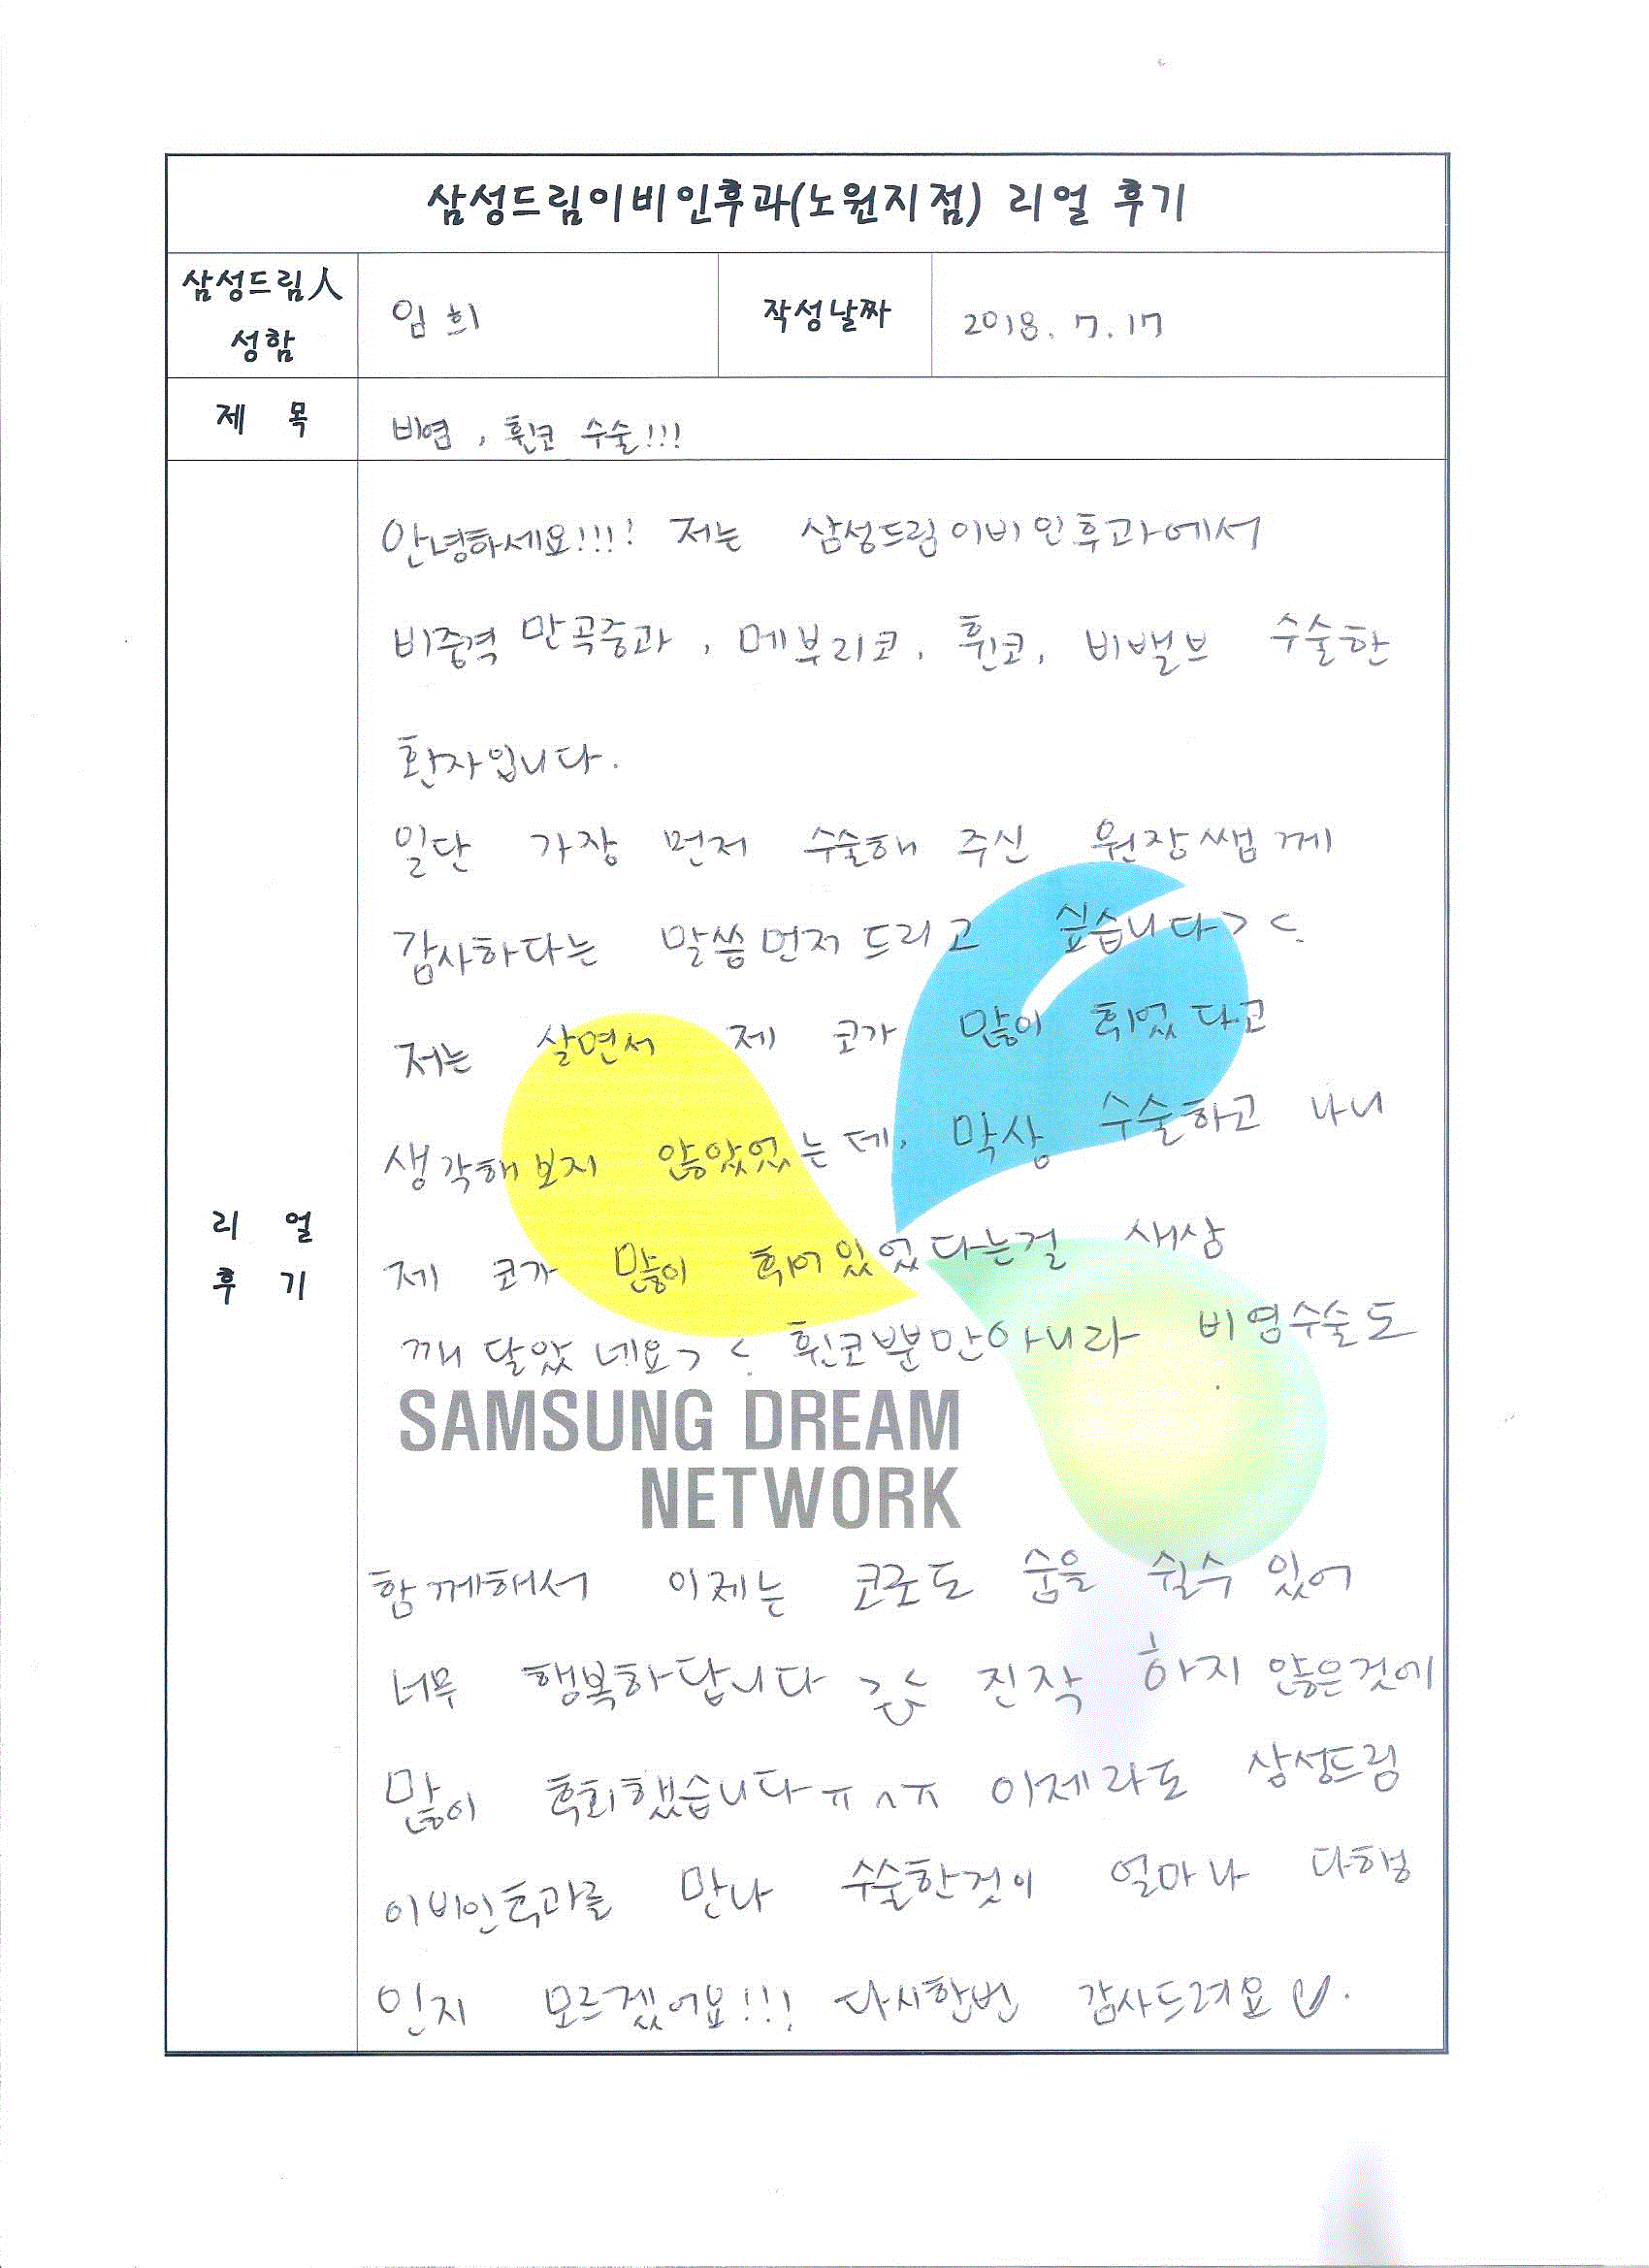 삼성드림이비인후과(노원지점) 리얼 후기
삼성드림人
성함
임 희
작성날짜
2018. 7. 17
제 목
비염, 휜코 수술!!!
리 얼
후 기
안녕하세요!!!! 저는 삼성드림이비인후과에서
비중격 만곡증과, 메부리코, 휜코, 비밸브 수술한
환자입니다.
일단 가장 먼저 수술해 주신 원장쌤께
감사하다는 말씀먼저드리고 싶습니다> <.
저는 살면서 제 코가 많이 휘었다고
생각해보지 않았었는데, 막상 수술하고 나니
제 코가 많이 휘어있었다는걸 새삼
깨달았네요> <. 휜코뿐만아니라 비염수술도
SAMSUNG DREAM
NETWORK
함께해서 이제는 코로도 숨을 쉴수 있어
너무 행복하답니다 >< 진작 하지 않은것에
많이 후회했습니다ㅠㅅㅠ 이제라도 삼성드림
이비인후과를 만나 수술한것이 얼마나 다행
인지 모르겠어요!!! 다시한번 감사드려요♡.